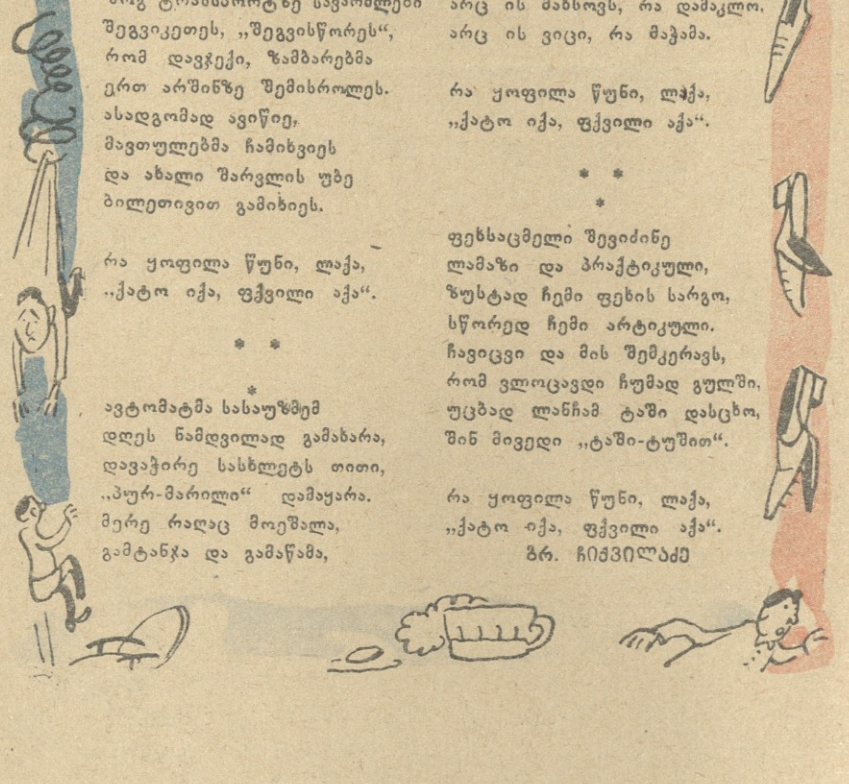 ტრანსპორტზე სავარძლები
შეგვიკეთეს, „შეგვისწორეს“,
რომ დავჯექი, ზამბარებმა
ერთ არშინზე შემისროლეს.
ასადგომად ავიწიე,
მავთულებმა ჩამიხვიეს
და ახალი შარვლის უბე
ბილეთივით გამიხიეს.
რა ყოფილა წუნი, ლაქა,
„ქატო იქა, ფქვილი აქა“.
* *
*
ავტომატმა სასაუზმემ
დღეს ნამდვილად გამახარა,
დავაჭირე სასხლეტს თითი,
„პურ-მარილი“ დამაყარა.
მერე რაღაც მოეშალა,
გამტანჯა და გამაწამა,
არც ის მახსოვს, რა დამაკლო,
არც ის ვიცი, რა მაჭამა.
რა ყოფილა წუნი, ლაქა,
„ქატო იქა, ფქვილი აქა“.
* *
*
ფეხსაცმელი შევიძინე
ლამაზი და პრაქტიკული,
ზუსტად ჩემი ფეხის სარგო,
სწორედ ჩემი არტიკული.
ჩავიცვი და მის შემკერავს,
რომ ვლოცავდი ჩუმად გულში,
უცბად ლანჩამ ტაში დასცხო,
შინ მივედი „ტაში-ტუშით“.
რა ყოფილა წუნი, ლაქა,
„ქატო იქა, ფქვილი აქა“.
გრ. ჩიქვილაძე